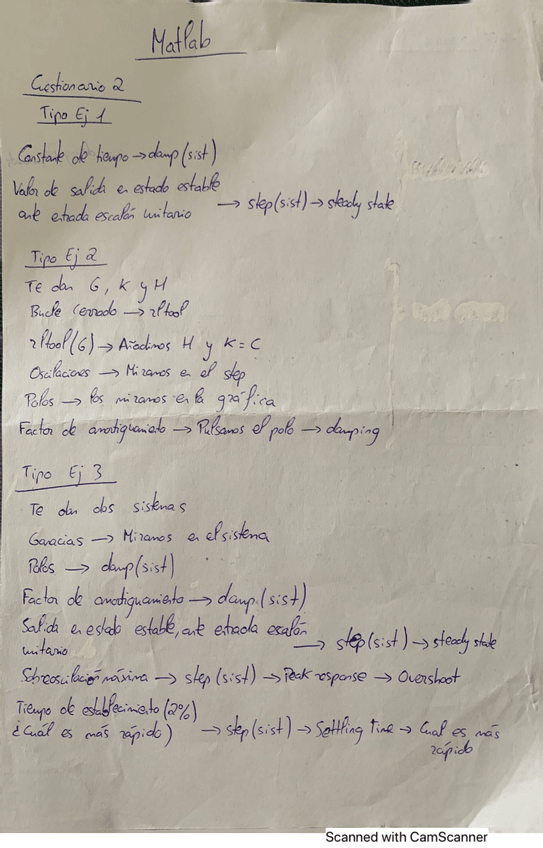 Matlab
Cuestionario 2
Tipo Ej 1
Constante de tiempo → damp(sist)
Valor de salida en estado estable
ante entrada escalón unitario → step(sist) → steady state
Tipo Ej 2
Te dan G, K y H
Bucle cerrado → rltool
rltool(G) → Añadimos H y K = C
Oscilaciones → Miramos en el step
Polos → los miramos en la gráfica
Factor de amortiguamiento → Pulsamos el polo → damping
Tipo Ej 3
Te dan dos sistemas
Ganacias → Miramos en el sistema
Polos → damp(sist)
Factor de amortiguamiento → damp(sist)
Salida en estado estable, ante entrada escalón
unitario → step(sist) → steady state
Sobreoscilación máxima → step(sist) → Peak response → Overshoot
Tiempo de establecimiento (2%)
¿Cuál es más rápido) → step(sist) → Settling Time → Cual es más
rápido
Scanned with CamScanner